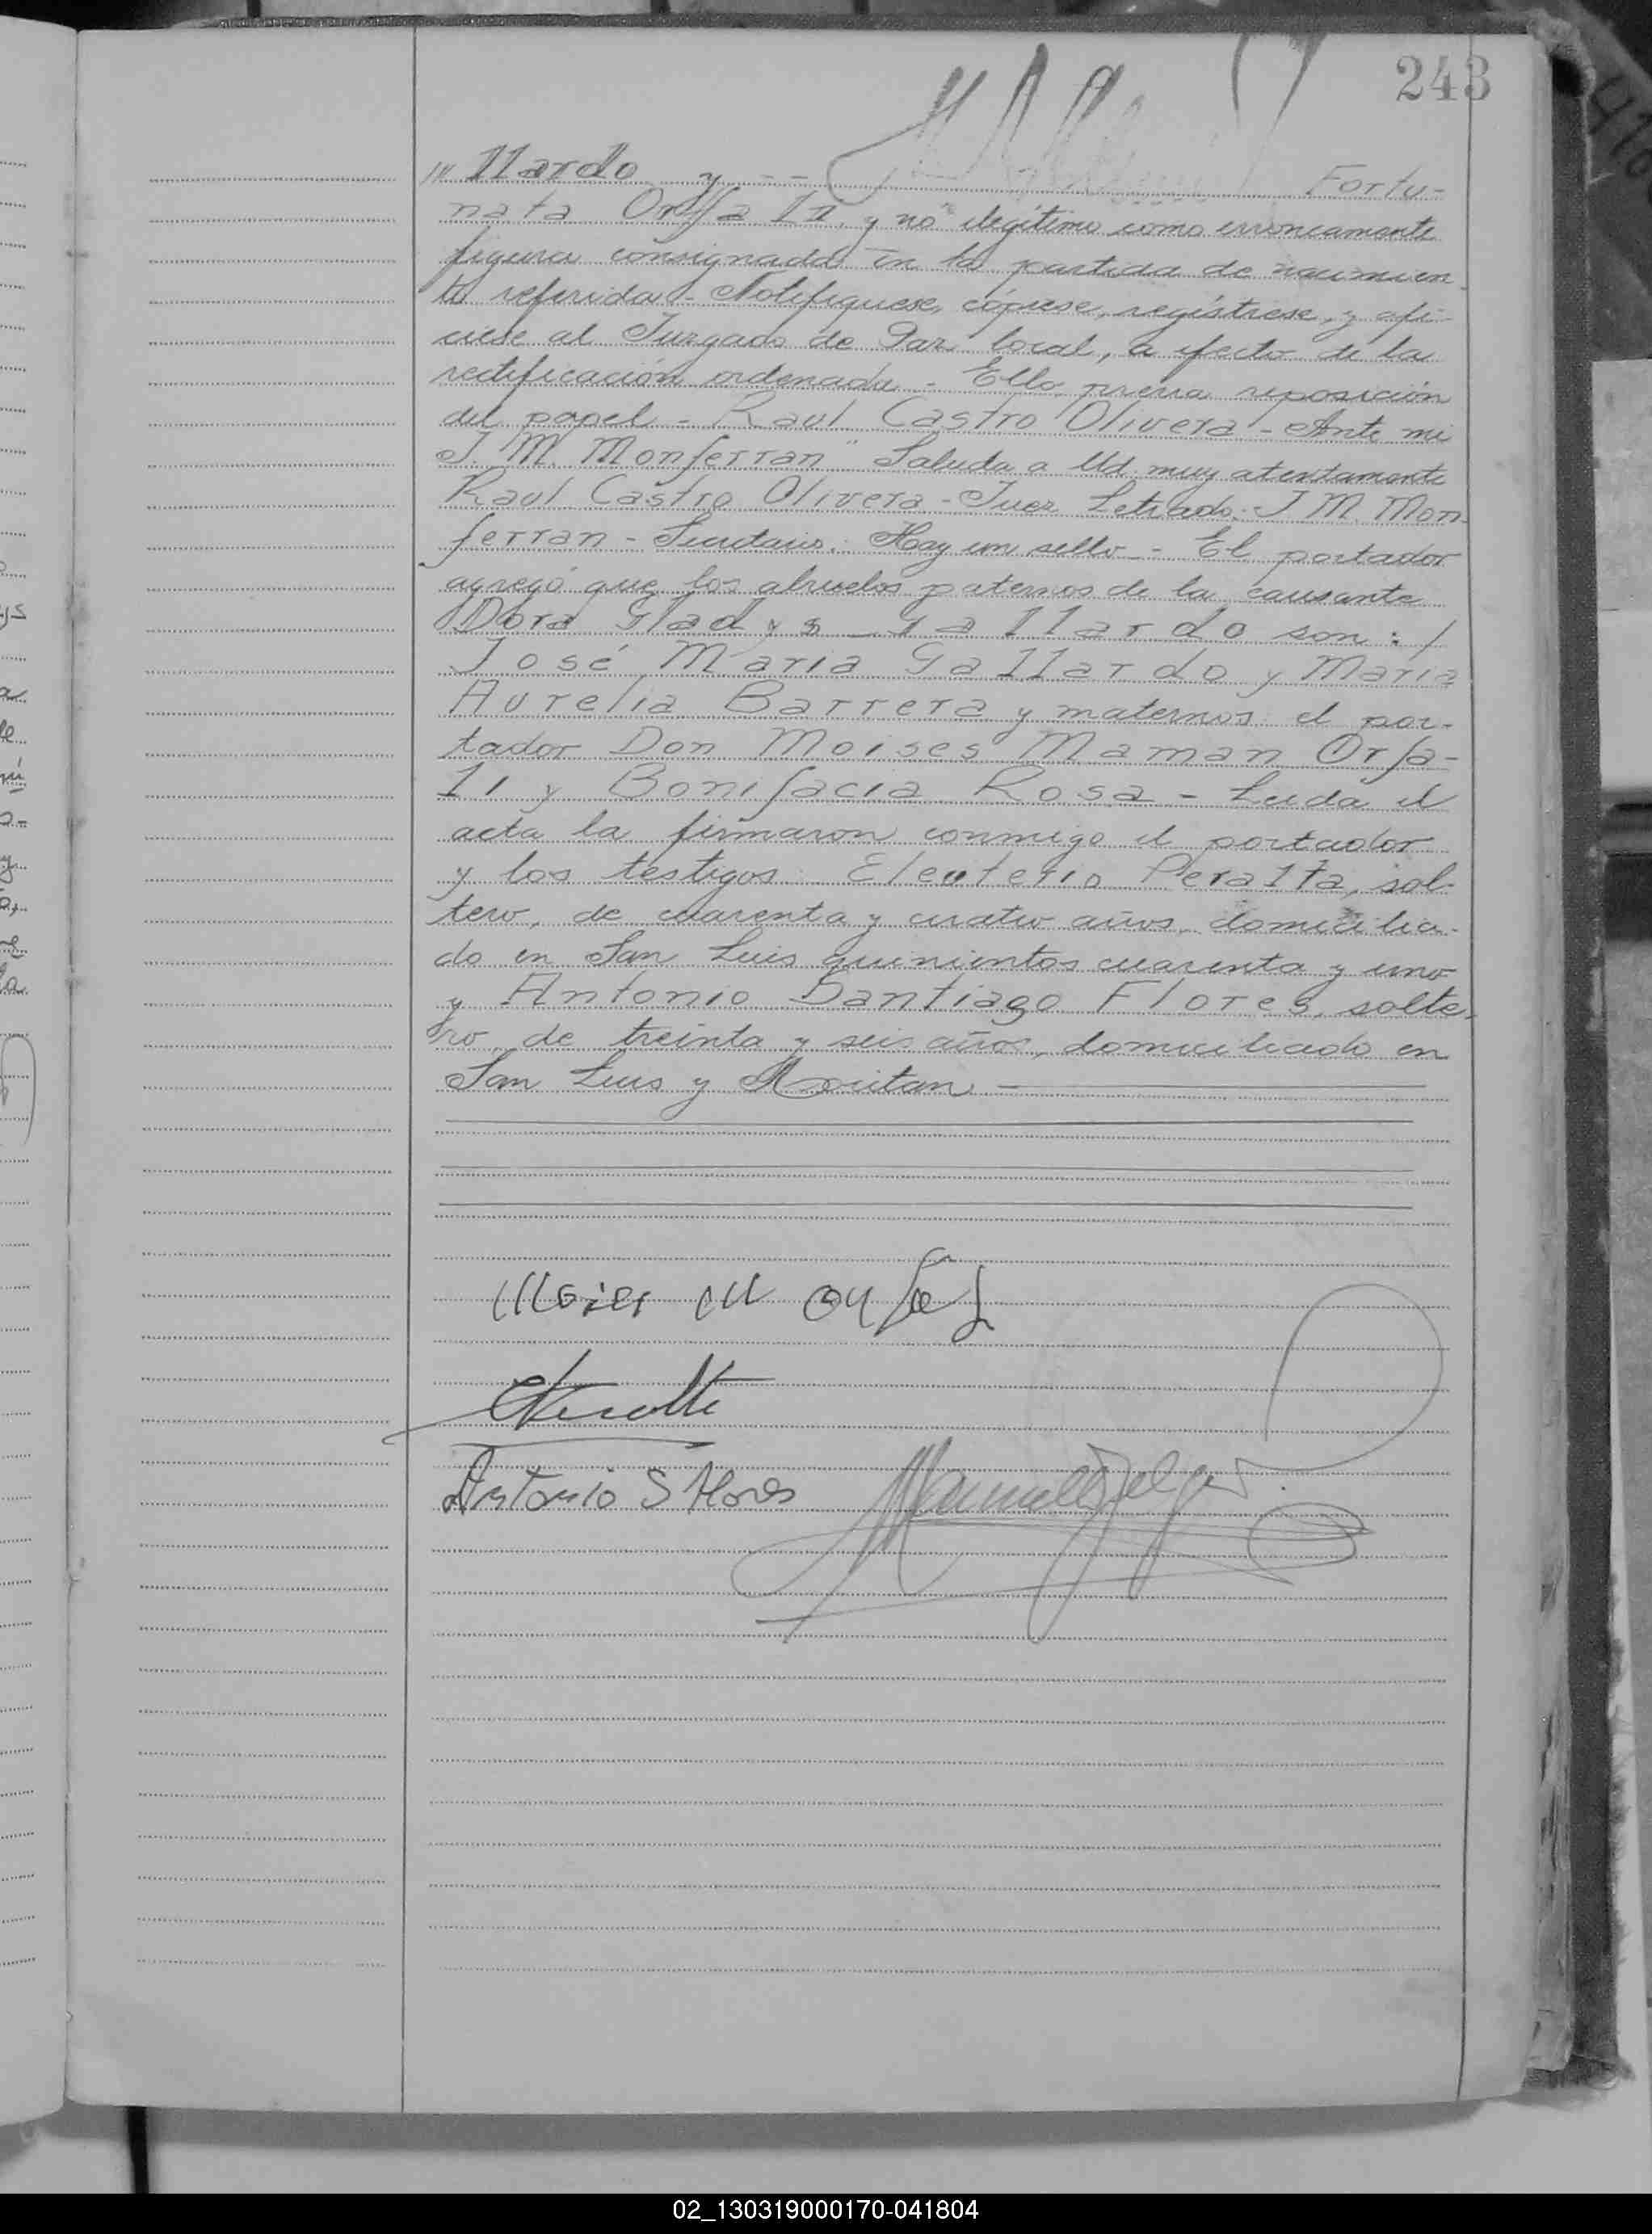 243
''' llardo y -- Fortu-
nata Orfali, y no ilegítimo como erróneamente
figura consignada en la partida de nacimien-
to referida - Notifíquese, cópiese, regístrese, y ofí-
ciese al Juzgado de Paz local, a efecto de la
rectificación ordenada - Ello, previa reposición
del papel - Raul Castro Olivera - Ante mi
J. M. Monferran" Saluda a Ud. muy atentamente
Raul Castro Olivera - Juez Letrado. J M. Mon-
ferran - Secretario. Hay un sello - El portador
agregó que los abuelos paternos de la causante
Dora Gladys Gallardo son: /
José Maria Gallardo y Maria
Aurelia Barrera y maternos el por-
tador Don Moises Maman Orfa-
li y Bonifacia Rosa - Leida el
acta la firmaron conmigo el portador
y los testigos Eleuterio Peralta, sol-
tero, de cuarenta y cuatro años, domicilia-
do en San Luis quinientos cuarenta y uno
y Antonio Santiago Flores, solte-
ro, de treinta y seis años, domiciliado en
San Luis y
Moises M Orfali
Antonio S Flores
02_130319000170-041804